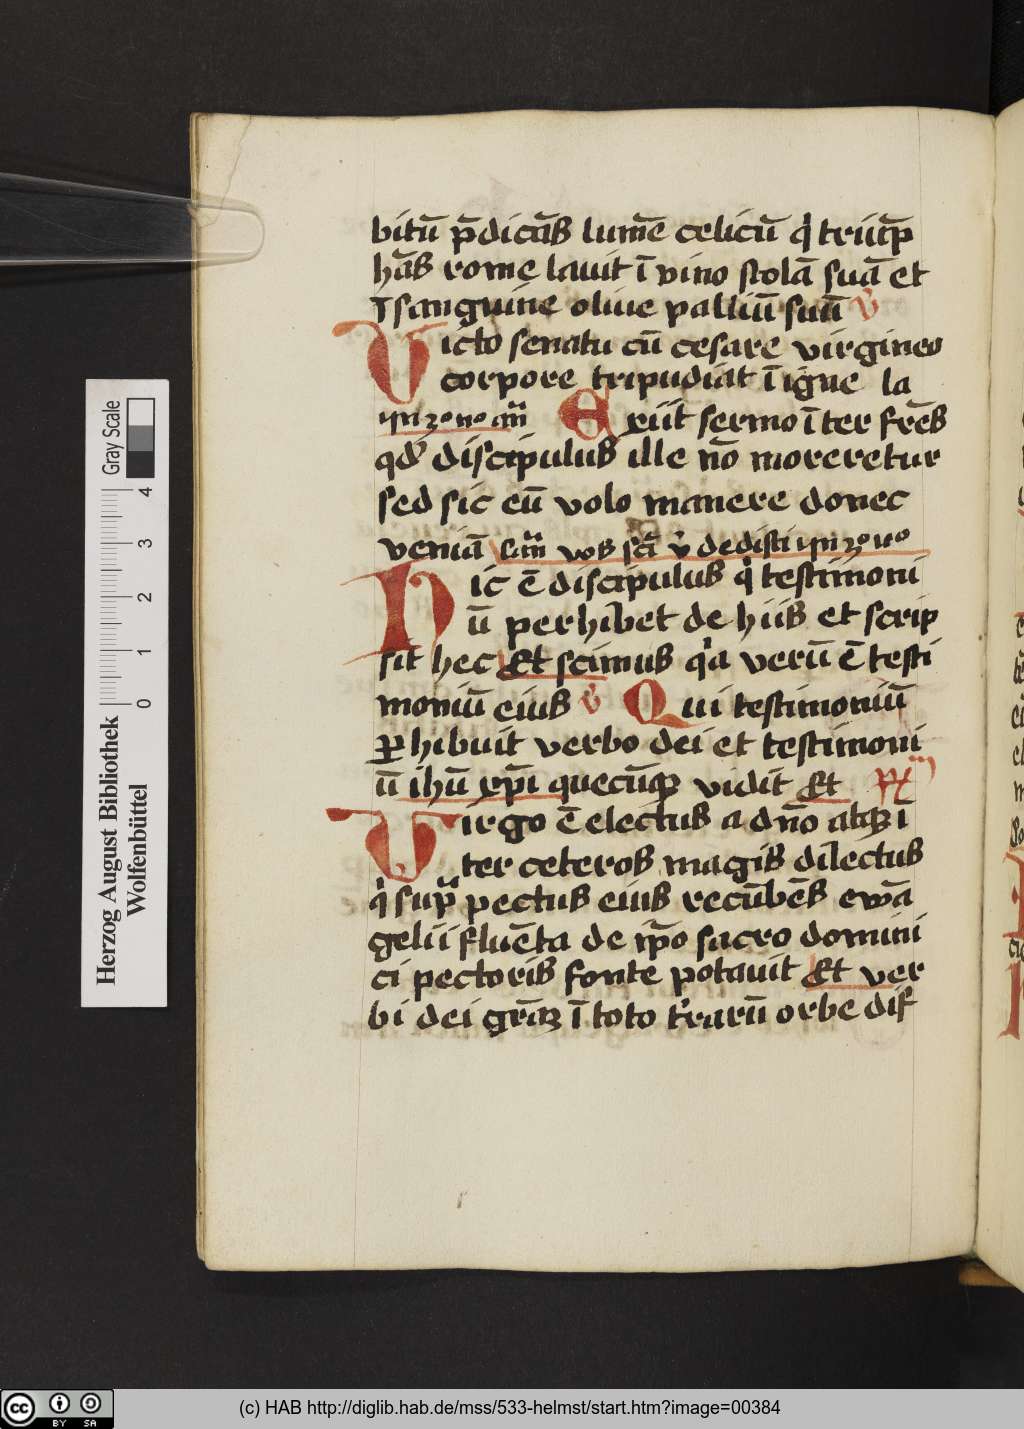 bitū p̄dicās lumē celicū qͥ triūp̄
hās rome lauit ī vino stolā suā et
ī sanguine oliue palliū suū v̄
Victo senatu cū cesare virgineo
corpore tripudiat ī igne la
in 2º nº añ Exiit sermo īter frēs
qd̄ discipulus ille nō moreretur
sed sic eū volo manere donec
veniā sctī v̄ dedisti in 2º nº
Hic ē discipulus qͥ testimoni
ū perhibet de hiis et scrip
sit hec Et scimus qͥa verū ē testi
moniū eius v̄ Qui testimoniū
ꝑhibuit verbo dei et testimoni
ū ihū xp̄i quecūqꝫ vidit Et
Virgo ē electus a dño atqꝫ ī
ter ceteros magis dilectus
qͥ supᷓ pectus eius recūbēs ewā
gelii fluēta de ip̄o sacro domini
ci pectoris fonte potauit Et ver
bi dei grāꝫ ī toto t̓rarū orbe dif
Herzog August Bibliothek
Wolfenbüttel
0 1 2 3 4
Gray Scale
(c) HAB http://diglib.hab.de/mss/533-helmst/start.htm?image=00384
cc BY SA